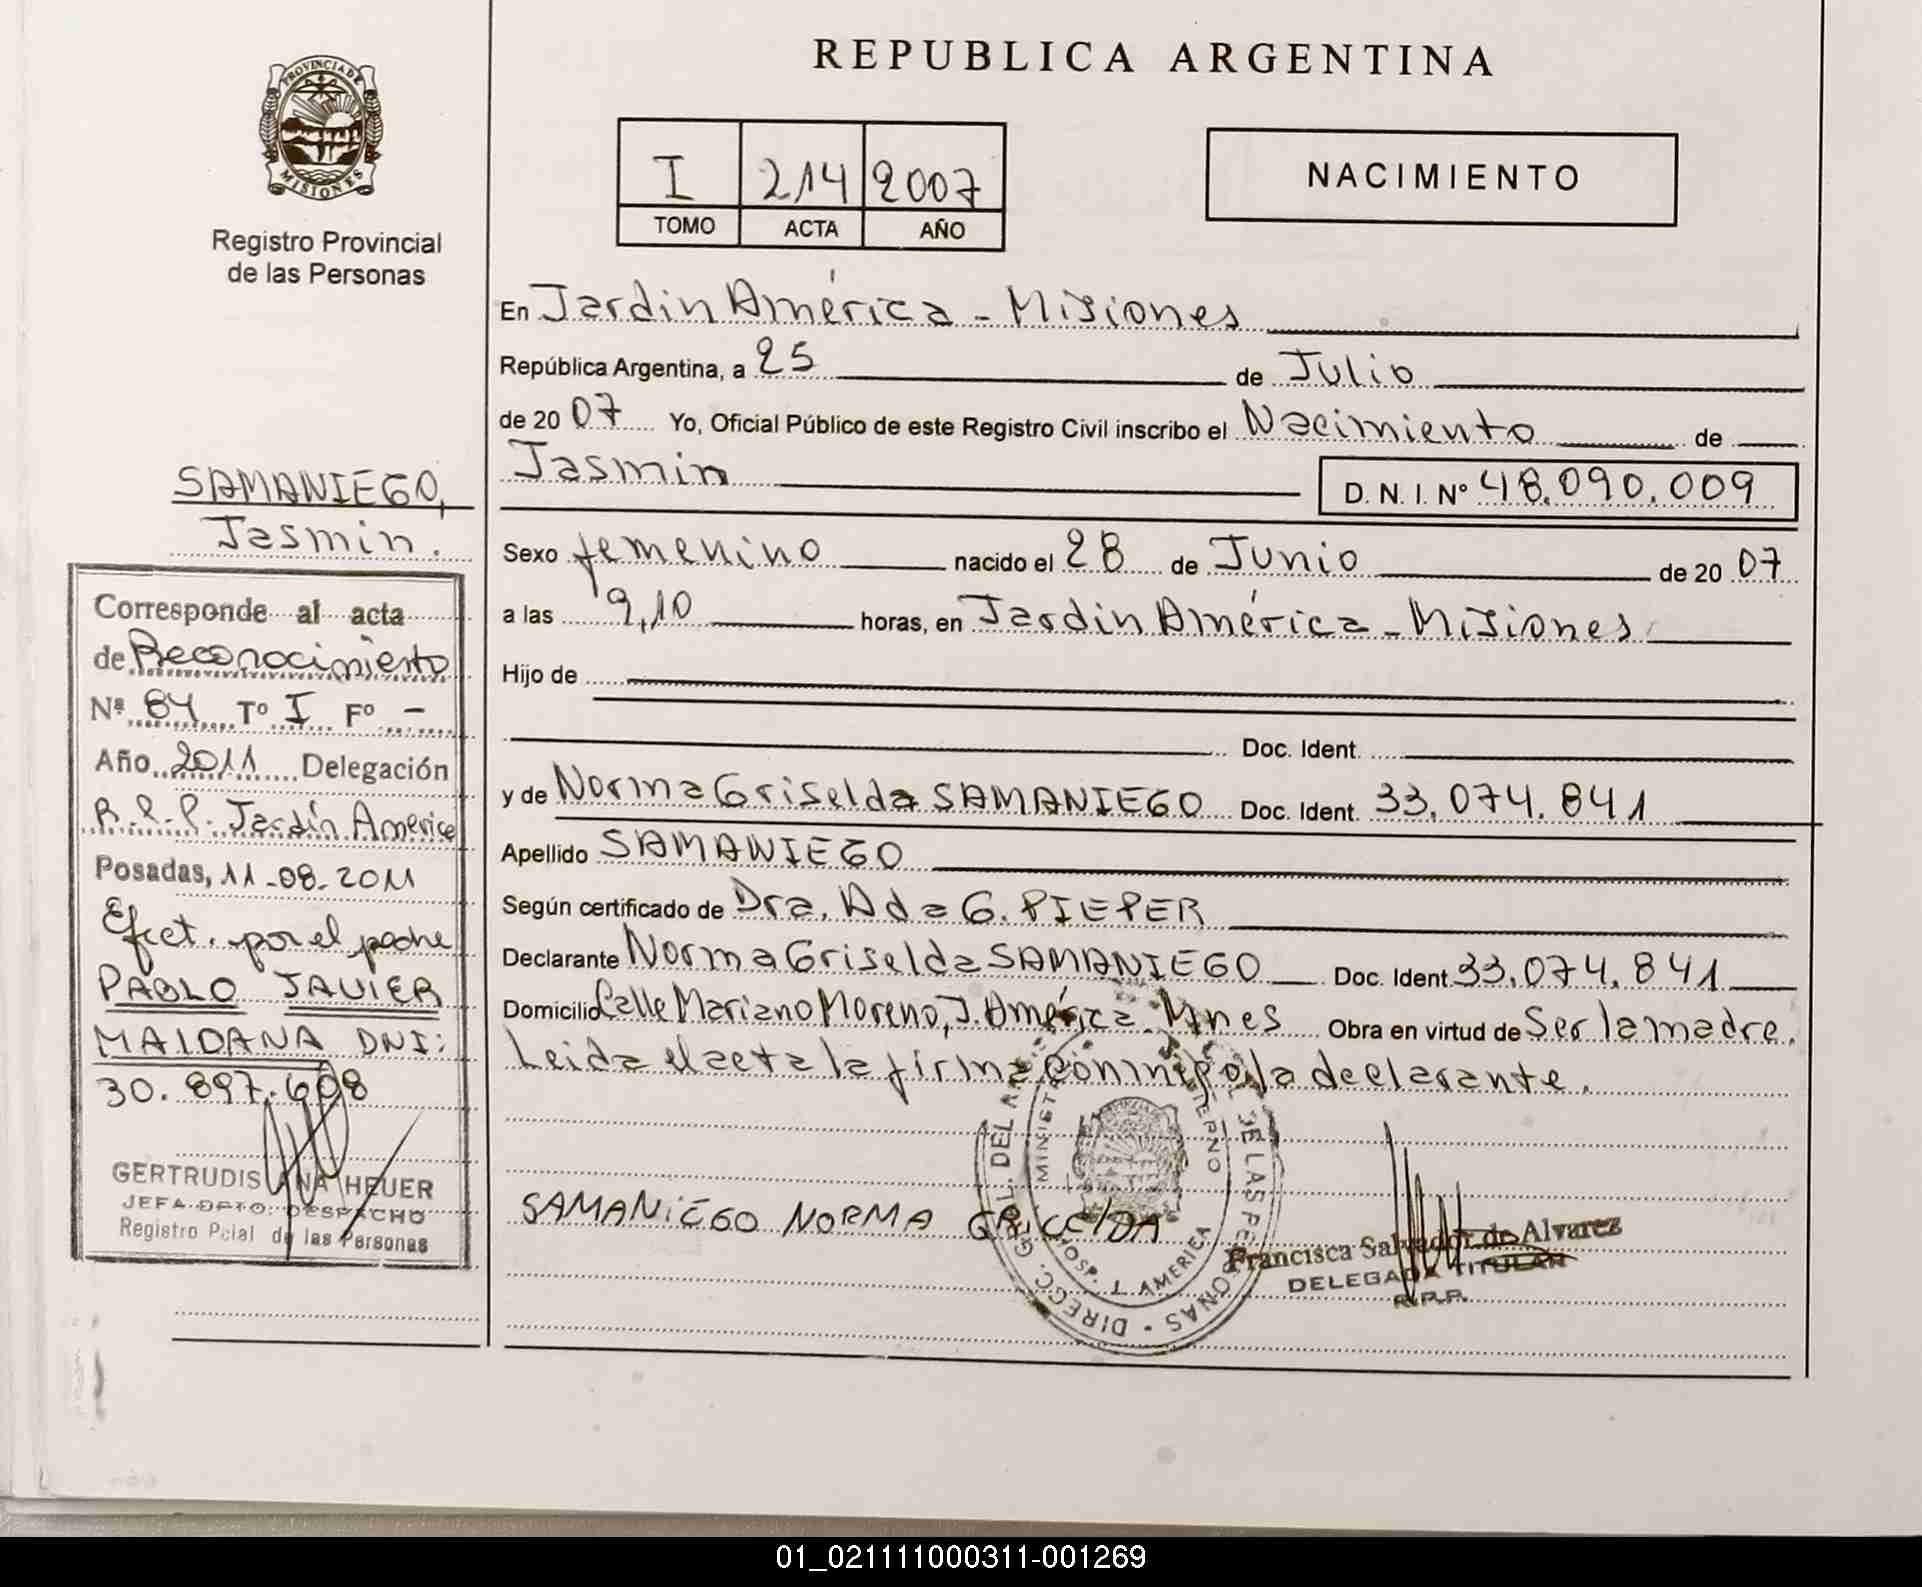 REPUBLICA ARGENTINA
PROVINCIA DE MISIONES
Registro Provincial
de las Personas
I 214 2007
TOMO ACTA AÑO
NACIMIENTO
En Jardin América - Misiones
República Argentina, a 25 de Julio
de 2007 Yo, Oficial Público de este Registro Civil inscribo el Nacimiento de
Jasmin D. N. I. Nº 48.090.009
Sexo femenino nacido el 28 de Junio de 2007
a las 9,10 horas, en Jardin América - Misiones
Hijo de
Doc. Ident.
y de Norma Griselda SAMANIEGO Doc. Ident. 33.074.841
Apellido SAMANIEGO
Según certificado de Dra. Ada G. PIEPER
Declarante Norma Griselda SAMANIEGO Doc. Ident. 33.074.841
Domicilio Calle Mariano Moreno, J. América - Mnes Obra en virtud de Ser la madre.
Leida el acta la firma conmigo la declarante.
SAMANIEGO NORMA GRICELDA
DIRECC. GRAL. DEL DE LAS PERSONAS
HOSP. J. AMERICA
Francisca Salvador de Alvarez
DELEGADA TITULAR
R.P.P.
SAMANIEGO,
Jasmin.
Corresponde al acta
de Reconocimiento
Nº 84 Tº I Fº -
Año 2011 Delegación
R.P.P. Jardín América
Posadas, 11-08-2011
Efect. por el padre
PABLO JAVIER
MAIDANA DNI:
30.897.608
GERTRUDIS ANA HEUER
JEFA DPTO. DESPACHO
Registro Pcial de las Personas
01_021111000311-001269